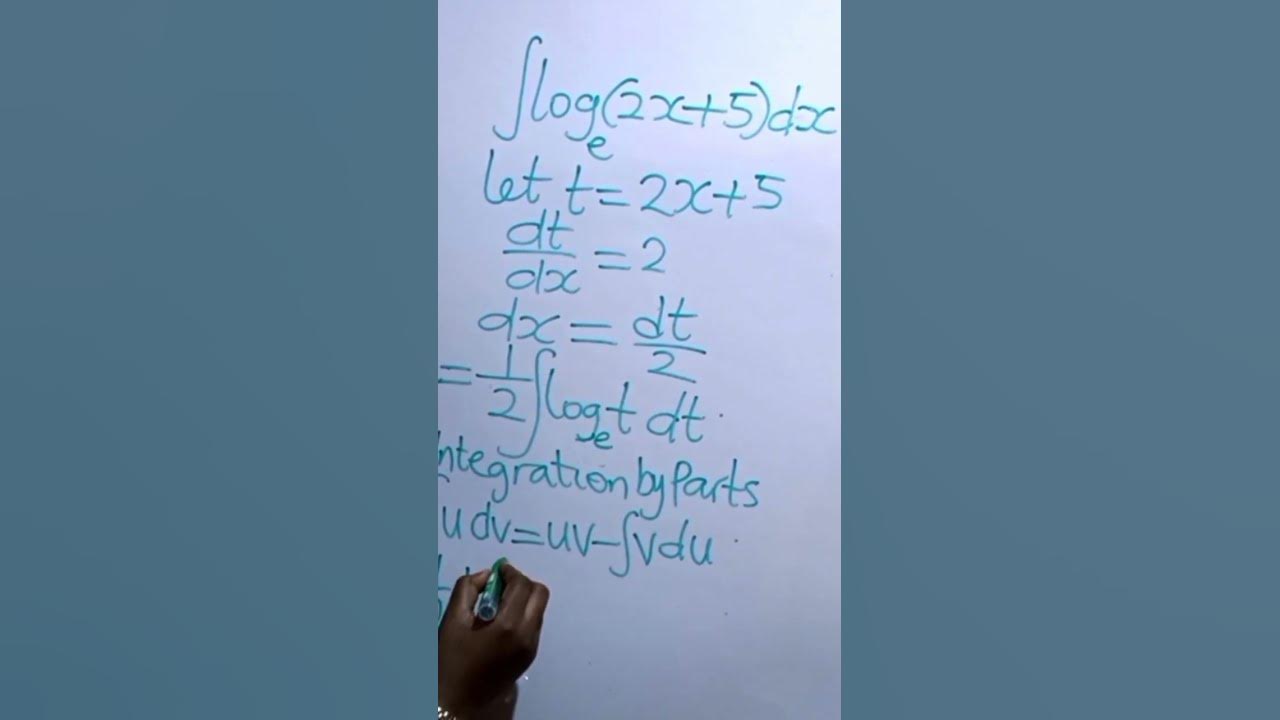 ∫log_e(2x+5)dx
let t=2x+5
dt/dx = 2
dx = dt/2
= 1/2 ∫log_e t dt
ntegration by Parts
u dv = uv - ∫v du